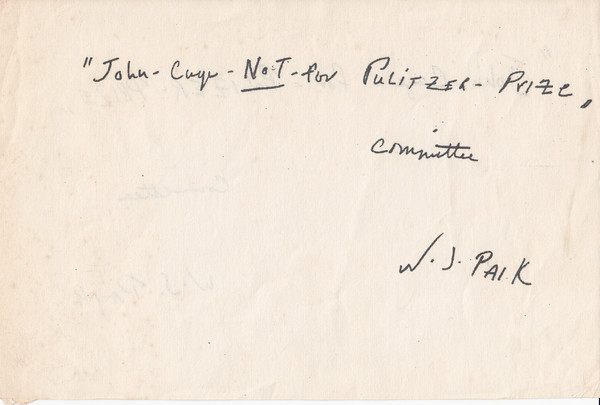 "John-Cage-NOT-for PULITZER-PRIZE,
Committee
N.J. PAIK